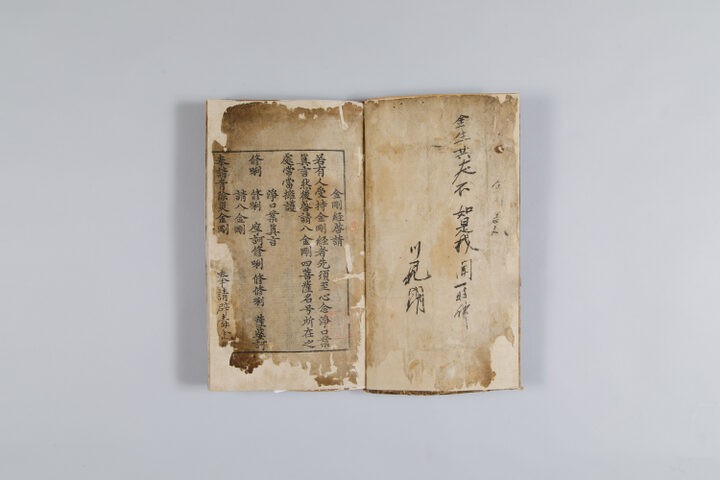 如是我聞一時佛
金剛經啓請
若有人受持金剛經者先須至心念淨口業
眞言然後啓請八金剛四菩薩名号所在之
處常當擁護
淨口業眞言
修唎 修唎 摩訶修唎 修修唎 薩婆訶
請八金剛
奉請靑除災金剛 奉請辟毒金